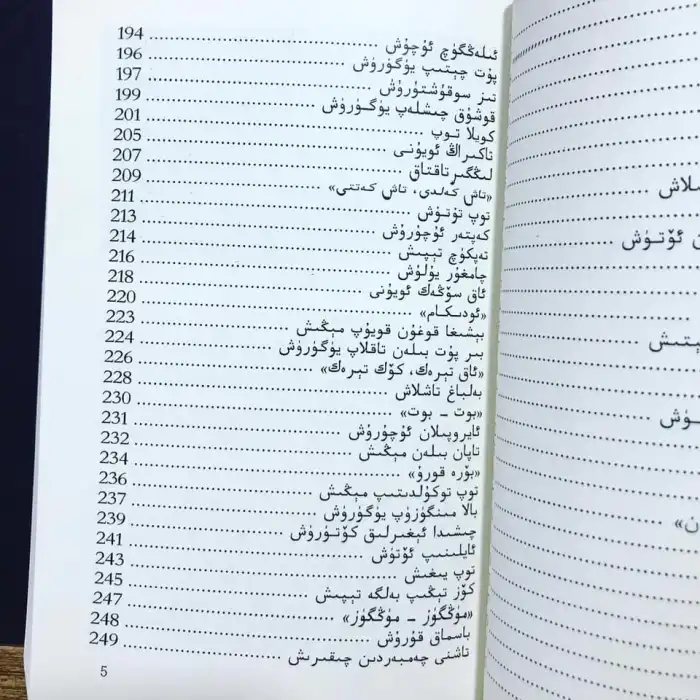 ئىلەڭگۈچ ئۇچۇش ........ 194
پۇت چېتىپ يۈگۈرۈش ........ 196
تىز سوقۇشتۇرۇش ........ 197
قوشۇق چىشلەپ يۈگۈرۈش ........ 199
كويلا توپ ........ 201
تاكىراڭ ئويۇنى ........ 205
لىڭگىرتاقتاق ........ 207
«تاش كەلدى، تاش كەتتى» ........ 209
توپ تۇتۇش ........ 211
كەپتەر ئۇچۇرۇش ........ 213
تەپكۈچ تېپىش ........ 214
چامغۇر يۇلۇش ........ 216
ئاق سۆڭەك ئويۇنى ........ 218
«ئودىكام» ........ 220
بېشىغا قوغۇن قويۇپ مېڭىش ........ 223
بىر پۇت بىلەن تاقلاپ يۈگۈرۈش ........ 224
«ئاق تېرەك، كۆك تېرەك» ........ 226
بەلباغ تاشلاش ........ 228
«بوت - بوت» ........ 230
ئايروپىلان ئۇچۇرۇش ........ 231
تاپان بىلەن مېڭىش ........ 232
«بۆرە قورۇ» ........ 234
توپ توكۇلدىتىپ مېڭىش ........ 236
بالا مىنگۈزۈپ يۈگۈرۈش ........ 237
چىشىدا ئېغىرلىق كۆتۈرۈش ........ 239
ئايلىنىپ ئۆتۈش ........ 241
توپ يىغىش ........ 243
كۆز تېڭىپ بەلگە تېپىش ........ 245
«مۈڭگۈز - مۈڭگۈز» ........ 247
باسماق قۇرۇش ........ 248
تاشنى چەمبەردىن چىقىرىش ........ 249
5